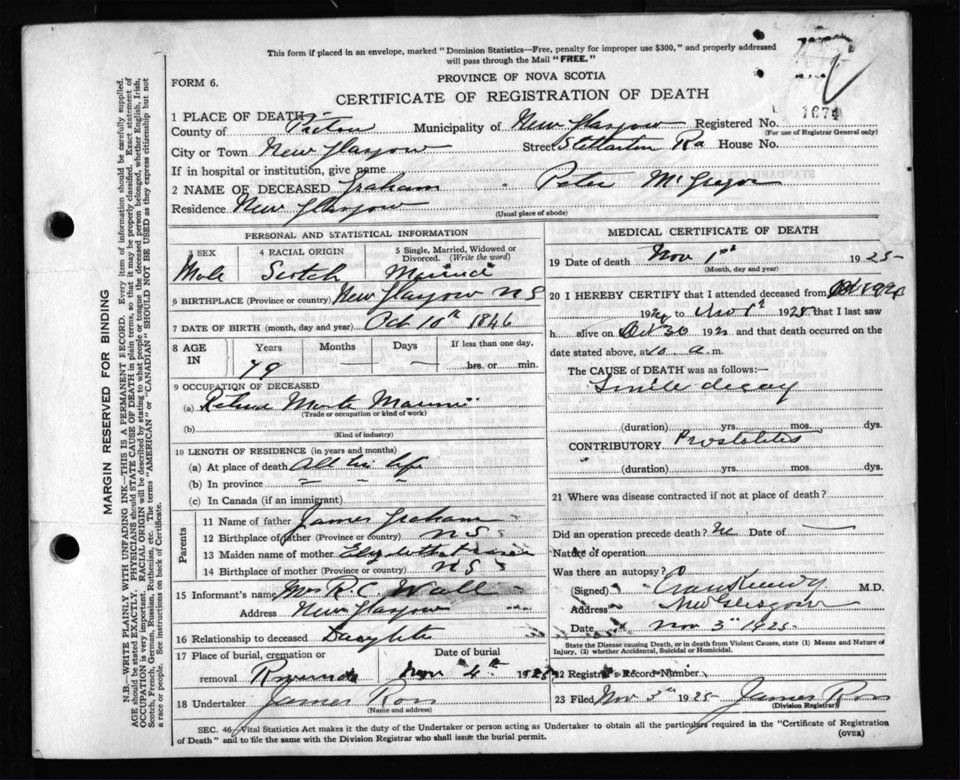 This form if placed in an envelope, marked "Dominion Statistics—Free, penalty for improper use $300," and properly addressed
will pass through the Mail "FREE."
FORM 6.
PROVINCE OF NOVA SCOTIA
CERTIFICATE OF REGISTRATION OF DEATH
1 PLACE OF DEATH—
County of Pictou Municipality of New Glasgow Registered No. 1674
(For use of Registrar General only)
City or Town New Glasgow Street Stellarton Rd House No.
If in hospital or institution, give name
2 NAME OF DECEASED Graham Peter McGregor
Residence New Glasgow
(Usual place of abode)
PERSONAL AND STATISTICAL INFORMATION
3 SEX 4 RACIAL ORIGIN 5 Single, Married, Widowed or Divorced. (Write the word)
Male Scotch Married
6 BIRTHPLACE (Province or country) New Glasgow N S
7 DATE OF BIRTH (month, day and year) Oct 10th 1846
8 AGE IN Years Months Days If less than one day,
79 hrs. or min.
9 OCCUPATION OF DECEASED
(a) Retired
(Trade or occupation or kind of work)
(b)
(Kind of industry)
10 LENGTH OF RESIDENCE (in years and months)
(a) At place of death All his life
(b) In province " " "
(c) In Canada (if an immigrant)
Parents
11 Name of father James Graham
12 Birthplace of father (Province or country) N S
13 Maiden name of mother Elizabeth
14 Birthplace of mother (Province or country) N S
15 Informant's name Mrs R. C. Wall
Address New Glasgow
16 Relationship to deceased Daughter
17 Place of burial, cremation or removal Date of burial
Nov 4th 1925
18 Undertaker James Ross
(Name and address)
MEDICAL CERTIFICATE OF DEATH
19 Date of death Nov 1st 1925
(Month, day and year)
20 I HEREBY CERTIFY that I attended deceased from
192 to Nov 1st 1925 that I last saw
h alive on Oct 30 192 and that death occurred on the
date stated above, at 10 a.m.
The CAUSE of DEATH was as follows:—
Senile decay
(duration) yrs. mos. dys.
CONTRIBUTORY Prostatitis
(duration) yrs. mos. dys.
21 Where was disease contracted if not at place of death?
Did an operation precede death? No Date of
Nature of operation
Was there an autopsy?
(Signed) M.D.
Address New Glasgow
Date Nov 3rd 1925
State the Disease causing Death, or in death from Violent Causes, state (1) Means and Nature of
Injury, (2) whether Accidental, Suicidal or Homicidal.
22 Registrar's Record Number
23 Filed Nov 3rd 1925 James Ross
(Division Registrar)
SEC. 46, Vital Statistics Act makes it the duty of the Undertaker or person acting as Undertaker to obtain all the particulars required in the "Certificate of Registration
of Death" and to file the same with the Division Registrar who shall issue the burial permit.
(OVER)
MARGIN RESERVED FOR BINDING
N.B.—WRITE PLAINLY WITH UNFADING INK—THIS IS A PERMANENT RECORD. Every item of information should be carefully supplied.
AGE should be stated EXACTLY. PHYSICIANS should STATE CAUSE OF DEATH in plain terms, so that it may be properly classified. Exact statement of
OCCUPATION is very important. RACIAL ORIGIN will be described by stating to what people or tongue the deceased person belonged, whether English, Irish,
Scotch, French, German, Russian, Ruthenian, etc. The terms "AMERICAN" or "CANADIAN" SHOULD NOT BE USED as they express citizenship but not
a race or people. See instructions on back of Certificate.